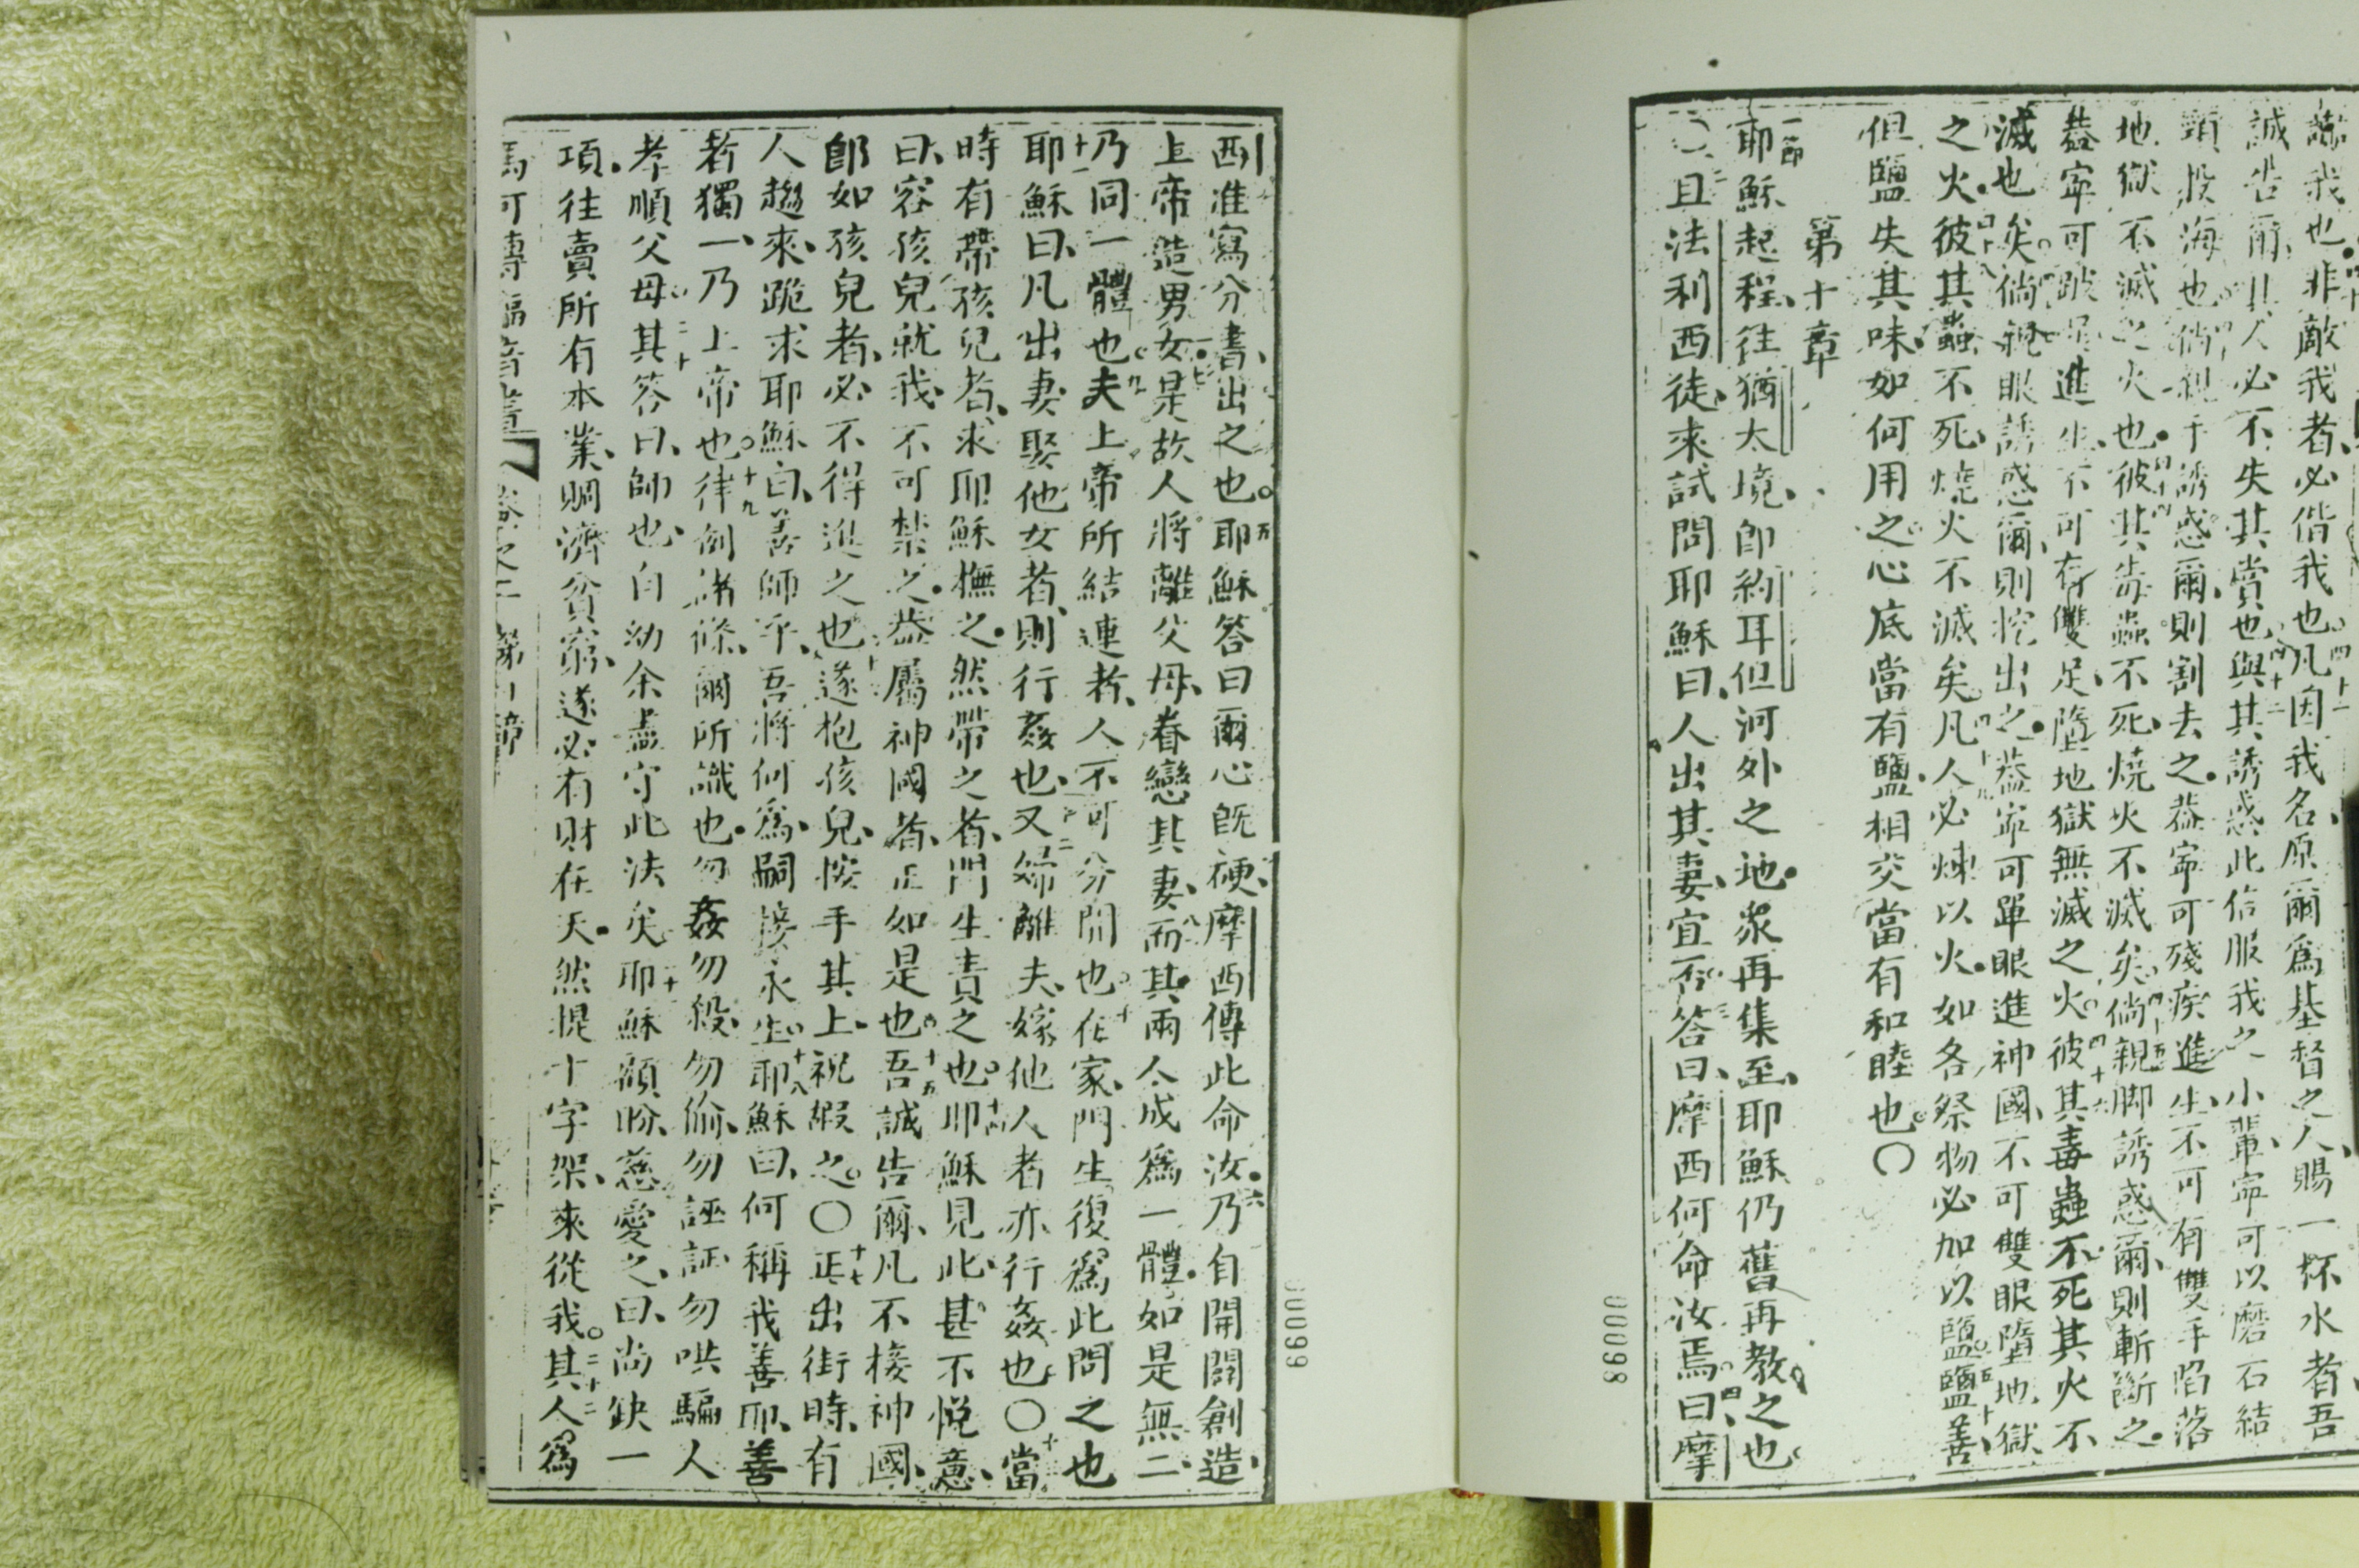 我也非敵我者必偕我也凡因我名原爾爲基督之人賜一杯水者吾
誠告爾其人必不失其賞也與其誘惑此信服我之小輩寧可以磨石結
頸投海也倘親手誘惑爾則割去之蓋寧可殘疾進生不可有雙手陷落
地獄不滅之火也彼其毒蟲不死燒火不滅矣倘親脚誘惑爾則斬斷之
蓋寧可跛足進生不可有雙足墮地獄無滅之火彼其毒蟲不死其火不
滅也矣倘親眼誘惑爾則挖出之蓋寧可單眼進神國不可雙眼墮地獄
之火彼其蟲不死燒火不滅矣凡人必煉以火如各祭物必加以鹽鹽善
但鹽失其味如何用之心底當有鹽相交當有和睦也〇
第十章
一節
耶穌起程往猶太境即約耳但河外之地衆再集至耶穌仍舊再教之也
〇且法利西徒來試問耶穌曰人出其妻宜否答曰摩西何命汝焉曰摩
00098
西准寫分書出之也耶穌答曰爾心既硬摩西傳此命汝乃自開闢創造
上帝造男女是故人將離父母眷戀其妻而其兩人成爲一體如是無二
乃同一體也夫上帝所結連者人不可分開也在家門生復爲此問之也
耶穌曰凡出妻娶他女者則行姦也又婦離夫嫁他人者亦行姦也〇當
時有帶孩兒者求耶穌撫之然帶之者門生責之也耶穌見此甚不悅意
曰容孩兒就我不可禁之蓋屬神國者正如是也吾誠告爾凡不接神國
即如孩兒者必不得進之也遂抱孩兒按手其上祝嘏之〇正出街時有
人趨來跪求耶穌曰善師乎吾將何爲嗣接永生耶穌曰何稱我善耶善
者獨一乃上帝也律例諸條爾所識也勿姦勿殺勿偷勿誣証勿哄騙人
孝順父母其答曰師也自幼余盡守此法矣耶穌顧盼慈愛之曰尚缺一
項往賣所有本業賙濟貧窮遂必有財在天然提十字架來從我其人爲
馬可傳福音書 卷之二 第十章
00099